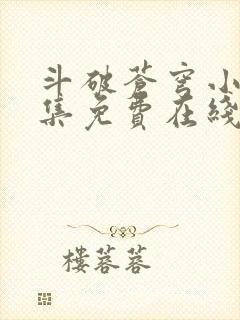 斗破苍穹小
集免費在綫
樓蓉蓉